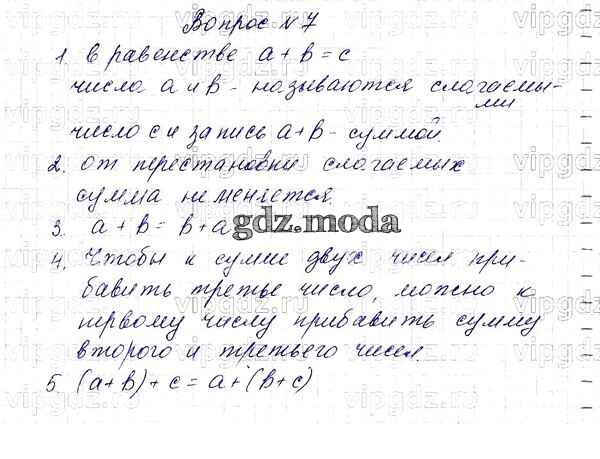 Вопрос №7
1. в равенстве a + b = c
числа a и b - называются слагаемы-
ми
число c и запись a+b - суммой.
2. от перестановки слагаемых
сумма не меняется.
3. a + b = b + a
gdz.moda
4. Чтобы к сумме двух чисел при-
бавить третье число, можно к
первому числу прибавить сумму
второго и третьего чисел.
5. (a+b)+c = a+(b+c)